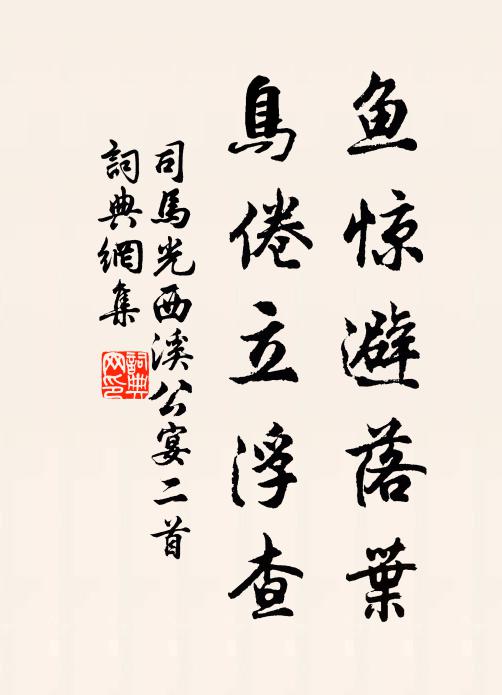 鱼惊避落葉
鳥倦立浮查
司馬光西溪公宴二首
詞典網集
詞典網印